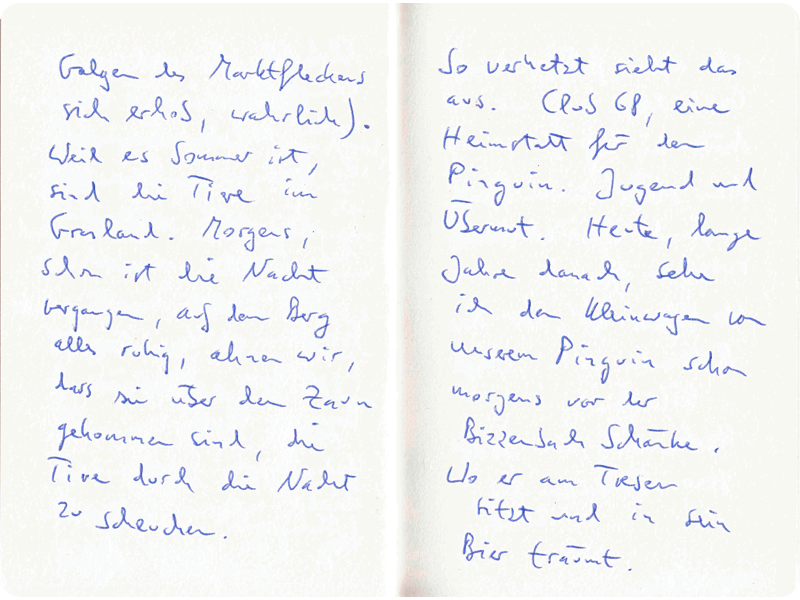 Galgen des Marktfleckens
sich erhob, wahrlich).
Weil es Sommer ist,
sind die Tire im
Grasland. Morgens,
schon ist die Nacht
vergangen, auf dem Berg
alles ruhig, ahnen wir,
dass sie über den Zaun
gekommen sind, die
Tire durch die Nacht
zu scheuchen.
So verhetzt sieht das
aus. Club 68, eine
Heimstatt für den
Pinguin. Jugend und
Übermut. Heute, lange
Jahre danach, sehe
ich den Kleinwagen von
unserem Pinguin schon
morgens vor der
Bizzenbach Schänke.
Wo er am Tresen
sitzt und in sein
Bier träumt.